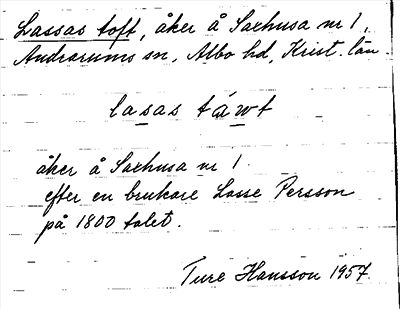 Lassas toft, åker å Saxhusa nr 1,
Andrarums sn, Albo hd, Krist. län.
lasas táwt
åker å Saxhusa nr 1
efter en brukare Lasse Persson
på 1800 talet.
Ture Hansson 1957.